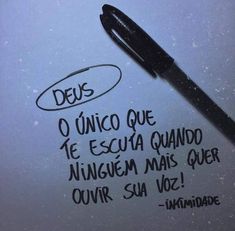 DEUS
O ÚNICO QUE
TE ESCUTA QUANDO
NINGUÉM MAIS QUER
OUVIR SUA VOZ!
-INTIMIDADE